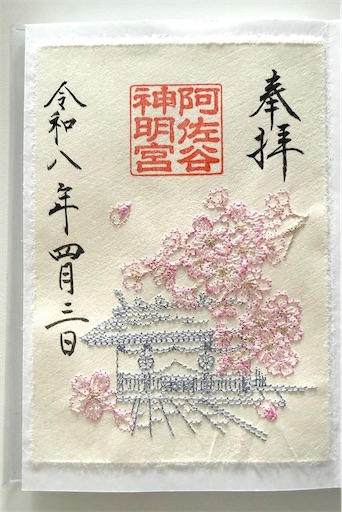 奉拝
阿佐谷
神明宮
令和八年四月三日